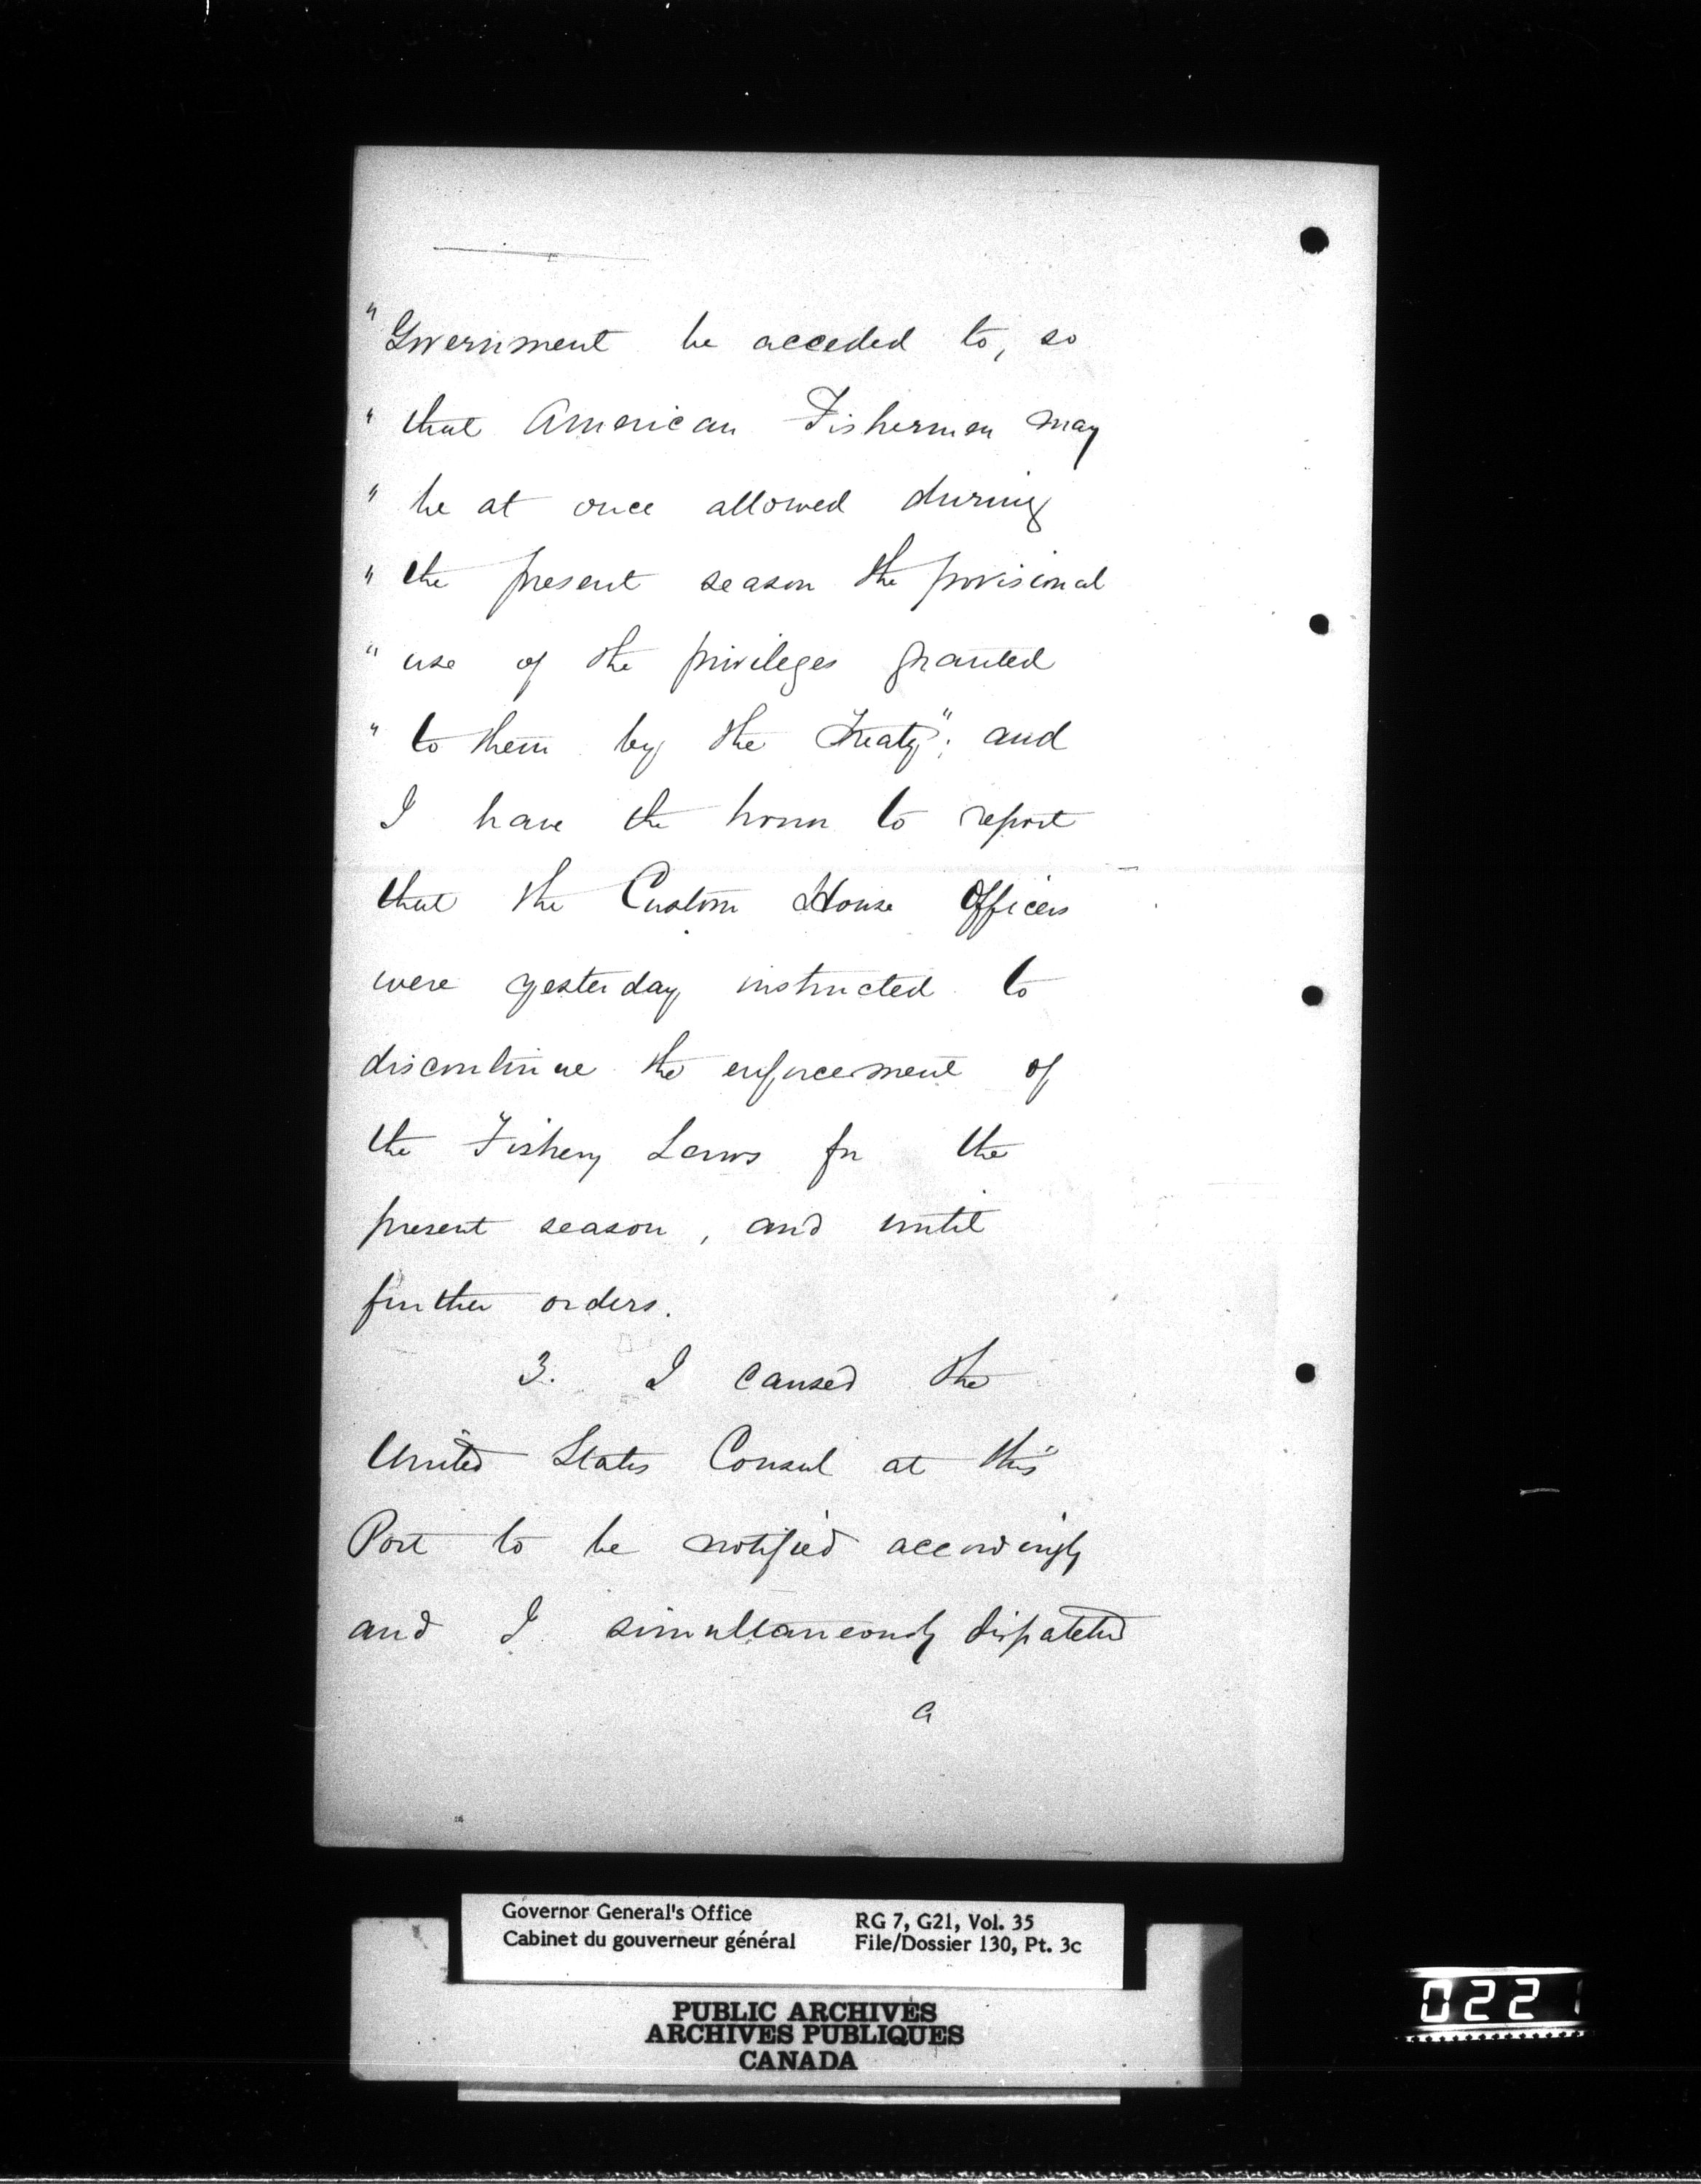 "Government be acceded to, so
" that American Fishermen may
" be at once allowed during
" the present season the provisional
" use of the privileges granted
" to them by the Treaty"; and
I have the honor to report
that the Custom House Officers
were yesterday instructed to
discontinue the enforcement of
the Fishery Laws for the
present season, and until
further orders.
3. I caused the
United States Consul at this
Port to be notified accordingly
and I simultaneously dispatched
a
Governor General's Office
Cabinet du gouverneur général
RG 7, G21, Vol. 35
File/Dossier 130, Pt. 3c
PUBLIC ARCHIVES
ARCHIVES PUBLIQUES
CANADA
022